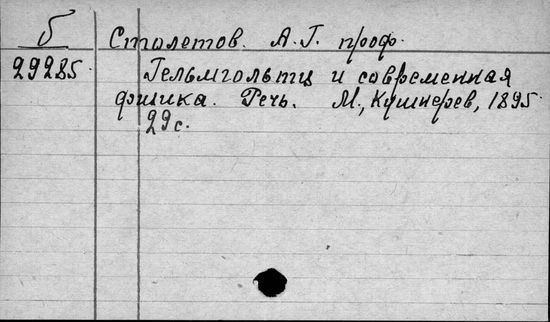 Б Столетов. А.Г. проф.
29285. Гельмгольтц и современная
физика. Речь. М., Кушнерев, 1895.
29 с.